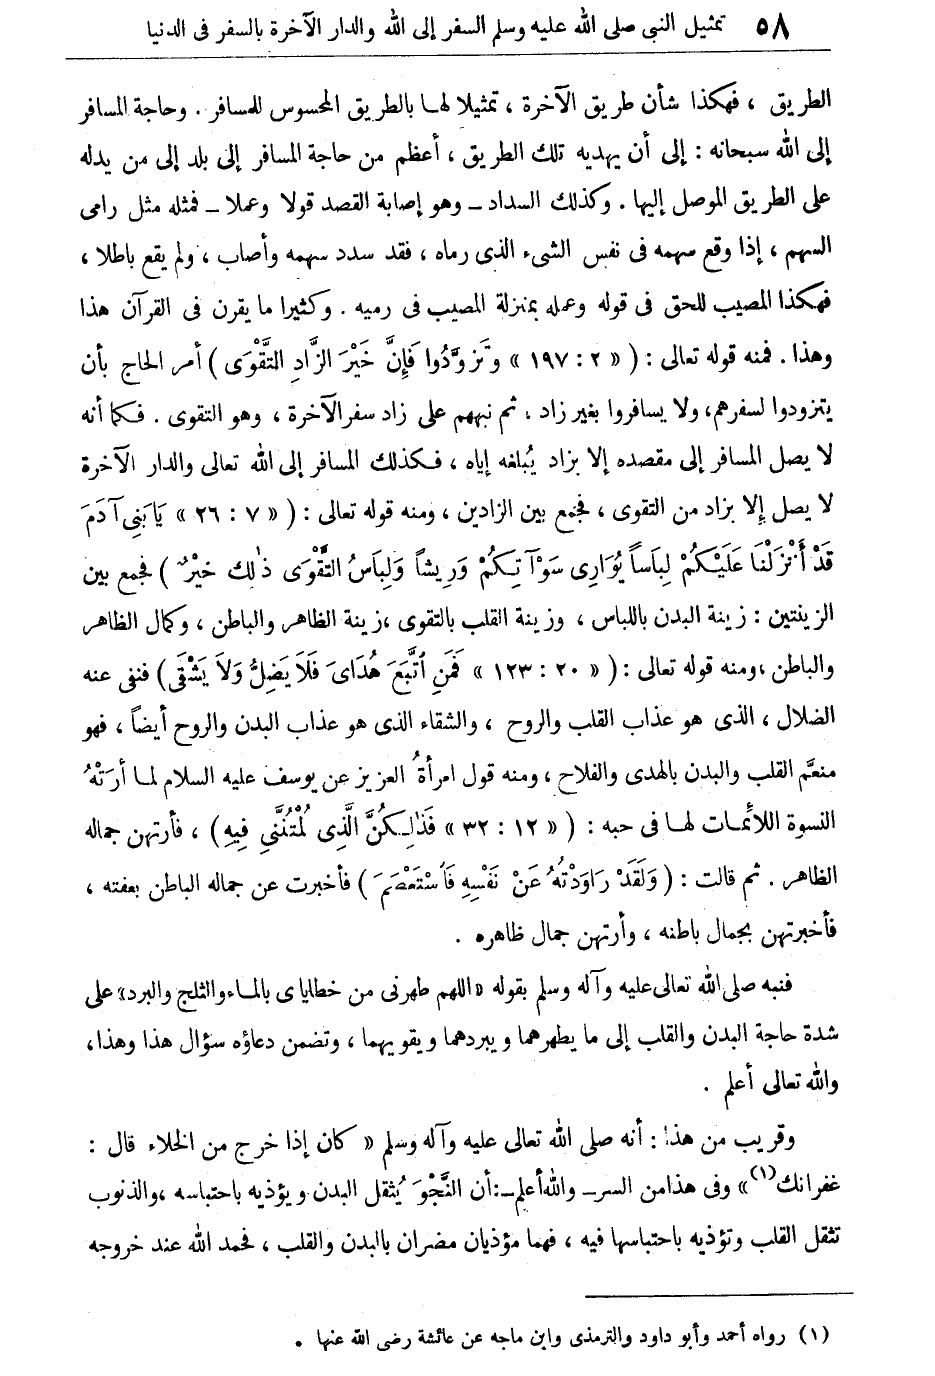 ٥٨ تمثيل النبى صلى الله عليه وسلم السفر إلى الله والدار الآخرة بالسفر فى الدنيا
الطريق ، فهكذا شأن طريق الآخرة ، تمثيلا لها بالطريق المحسوس للمسافر . وحاجة المسافر
إلى الله سبحانه : إلى أن يهديه تلك الطريق ، أعظم من حاجة المسافر إلى بلد إلى من يدله
على الطريق الموصل إليها . وكذلك السداد ــ وهو إصابة القصد قولا وعملا ــ فمثله مثل رامى
السهم ، إذا وقع سهمه فى نفس الشىء الذى رماه ، فقد سدد سهمه وأصاب ، ولم يقع باطلا ،
فهكذا المصيب للحق فى قوله وعمله بمنزلة المصيب فى رميه . وكثيرا ما يقرن فى القرآن هذا
وهذا . فمنه قوله تعالى : ( « ٢ : ١٩٧ » وَتَزوَّدُوا فَإِنَّ خَيْرَ الزَّادِ التَّقْوَى ) أمر الحاج بأن
يتزودوا لسفرهم، ولا يسافروا بغير زاد . ثم نبههم على زاد سفر الآخرة ، وهو التقوى . فكما أنه
لا يصل المسافر إلى مقصده إلا بزاد يُبلغه إياه ، فكذلك المسافر إلى الله تعالى والدار الآخرة
لا يصل إلا بزاد من التقوى ، فجمع بين الزادين ، ومنه قوله تعالى : ( « ٧ : ٢٦ » يَابَنِى آدَمَ
قَدْ أَنْزَلْنَا عَلَيْكُمْ لِبَاساً يُوَارِى سَوْآتِكُمْ وَرِيشاً وَلِبَاسُ التَّقْوَى ذٰلِك خَيْرٌ ) فجمع بين
الزينتين : زينة البدن باللباس ، وزينة القلب بالتقوى ،زينة الظاهر والباطن ، وكمال الظاهر
والباطن ،ومنه قوله تعالى : ( « ٢٠ : ١٢٣ » فَمَنِ اتَّبَعَ هُدَاىَ فَلَا يَضِلُّ وَلَا يَشْقَى ) فنفى عنه
الضلال ، الذى هو عذاب القلب والروح ، والشقاء الذى هو عذاب البدن والروح أيضاً ، فهو
منعَّم القلب والبدن بالهدى والفلاح ، ومنه قول امرأةُ العزيز عن يوسف عليه السلام لما أرَتْهُ
النسوة اللائمات لها فى حبه : ( « ١٢ : ٣٢ » فَذٰلِكُنَّ الَّذِى لُمْتُنَّنِى فِيهِ ) ، فأرتهن جماله
الظاهر . ثم قالت : ( وَلَقَدْ رَاوَدْتُهُ عَنْ نَفْسِهِ فَاسْتَعْصَمَ ) فأخبرت عن جماله الباطن بعفته ،
فأخبرتهن بجمال باطنه ، وأرتهن جمال ظاهره .
فنبه صلى الله تعالى عليه وآله وسلم بقوله «اللهم طهرنى من خطاياى بالماء والثلج والبرد» على
شدة حاجة البدن والقلب إلى ما يطهرهما ويبردهما ويقويهما ، وتضمن دعاؤه سؤال هذا وهذا،
والله تعالى أعلم .
وقريب من هذا : أنه صلى الله تعالى عليه وآله وسلم « كان إذا خرج من الخلاء قال :
غفرانك(١) » وفى هذا من السر ــ والله أعلم ــ : أن النَّجْوَ يُثقل البدن ويؤذيه باحتباسه ،والذنوب
تثقل القلب وتؤذيه باحتباسها فيه ، فهما مؤذيان مضران بالبدن والقلب ، فحمد الله عند خروجه
(١) رواه أحمد وأبو داود والترمذى وابن ماجه عن عائشة رضى الله عنها .